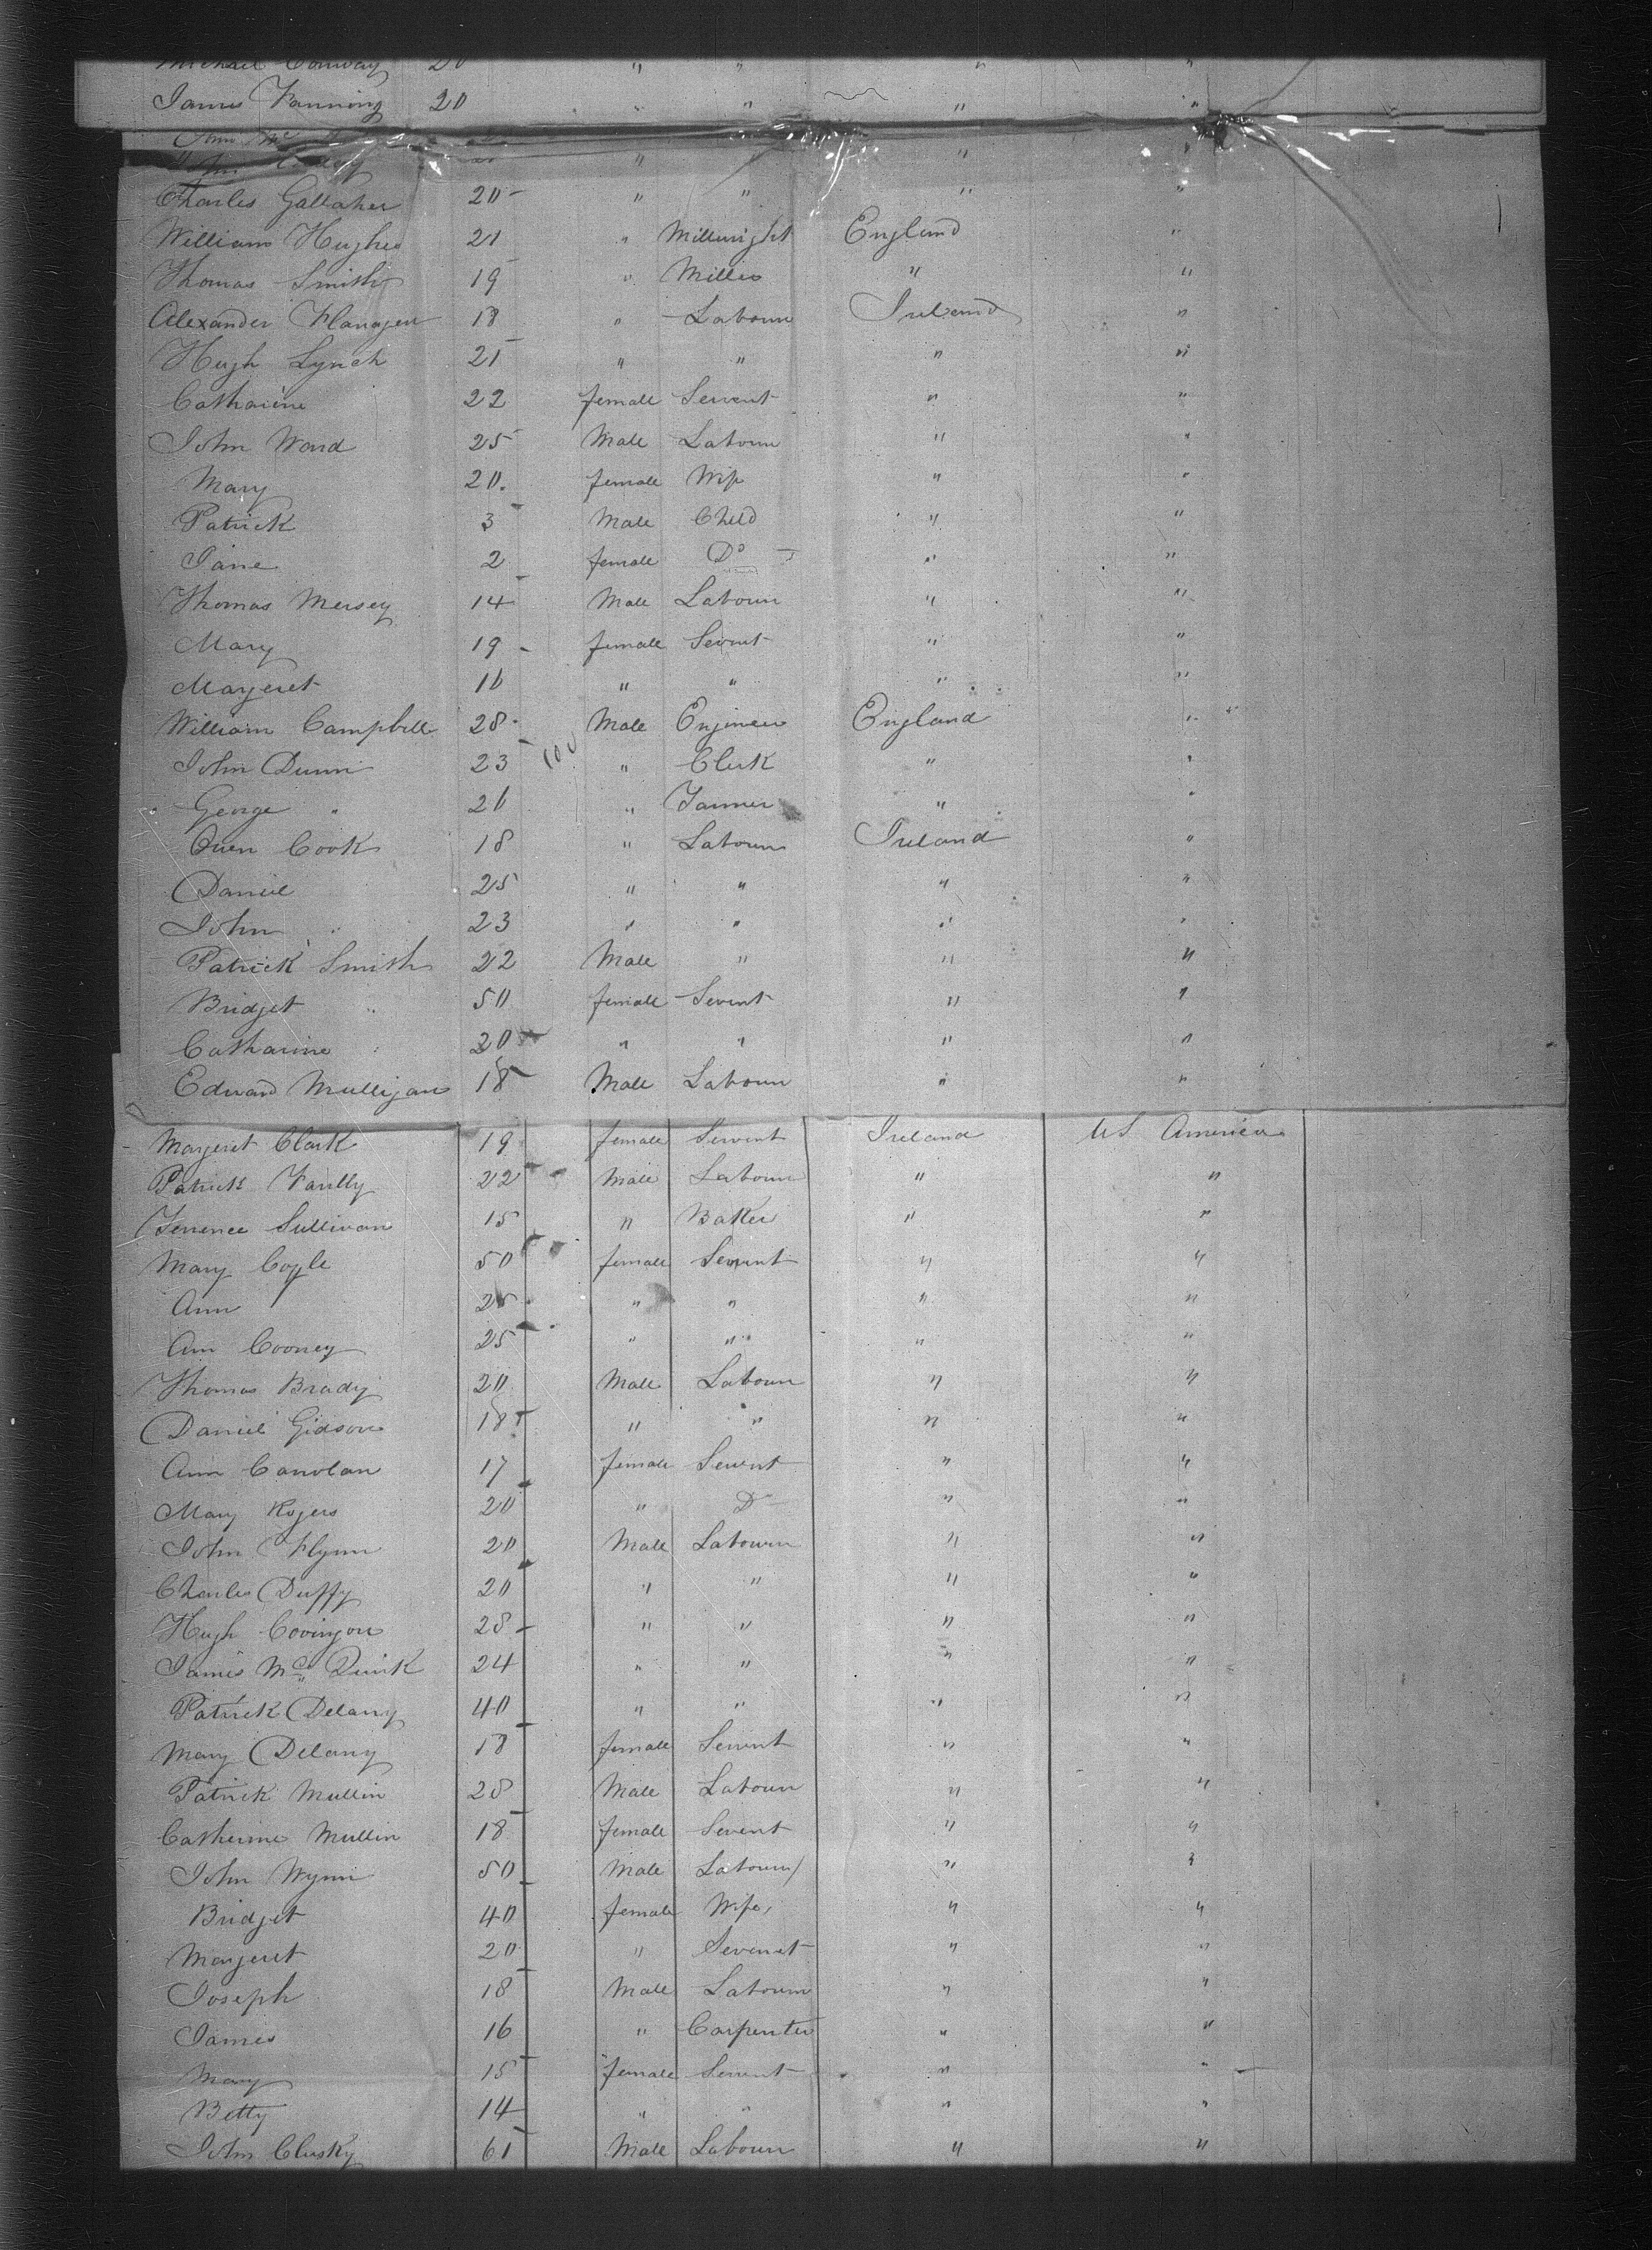 Michael Conway 20 " " " "
James Fanning 20 " " " "
John Mc
John " " "
Charles Gallaher 20 " " " "
William Hughes 21 " Millwright England "
Thomas Smith 19 " Miller " "
Alexander Flanagen 18 " Labourr Ireland "
Hugh Lynch 21 " " " "
Catharine 22 female Servent " "
John Ward 25 Male Labourr " "
Mary 20 female Wife " "
Patrick 3 Male Child " "
Jane 2 female Do " "
Thomas Mersey 14 Male Labourr " "
Mary 19 female Servnt " "
Margeret 16 " " " "
William Campbell 28 Male Engineer England "
John Dunn 23 100 " Clerk " "
George " 26 " " "
Owen Cook 18 " Labourr Ireland "
Daniel 25 " " " "
John " 23 " " " "
Patrick Smith 22 Male " " "
Bridget " 50 female Servent " "
Catharine " 20 " " " "
Edward Mulligan 18 Male Labourr " "
Margeret Clark 19 female Servent Ireland US America
Patrick 22 Male Labourr " "
Terrence Sullivan 15 " Baker " "
Mary Coyle 50 female Servent " "
Ann 25 " " " "
Ann Cooney 25 " " " "
Thomas Brady 20 Male Labourr " "
Daniel Gidson 18 " " " "
Ann Canolan 17 female Servent " "
Mary Rogers 20 " Do " "
John Flynn 20 Male Labourr " "
Charles Duffy 20 " " " "
Hugh 28 " " " "
James Mc Quirk 24 " " " "
Patrick Delany 40 " " " "
Mary Delany 18 female Servent " "
Patrick Mullin 28 Male Labourr " "
Catherine Mullin 18 female Servent " "
John Wynn 50 Male Labourr " "
Bridget 40 female Wife " "
Margeret 20 " Servent " "
Joseph 18 Male Labourr " "
James 16 " Carpenter " "
Mary 15 female Servent " "
Betty 14 " " " "
John Clusky 61 Male Labourr " "